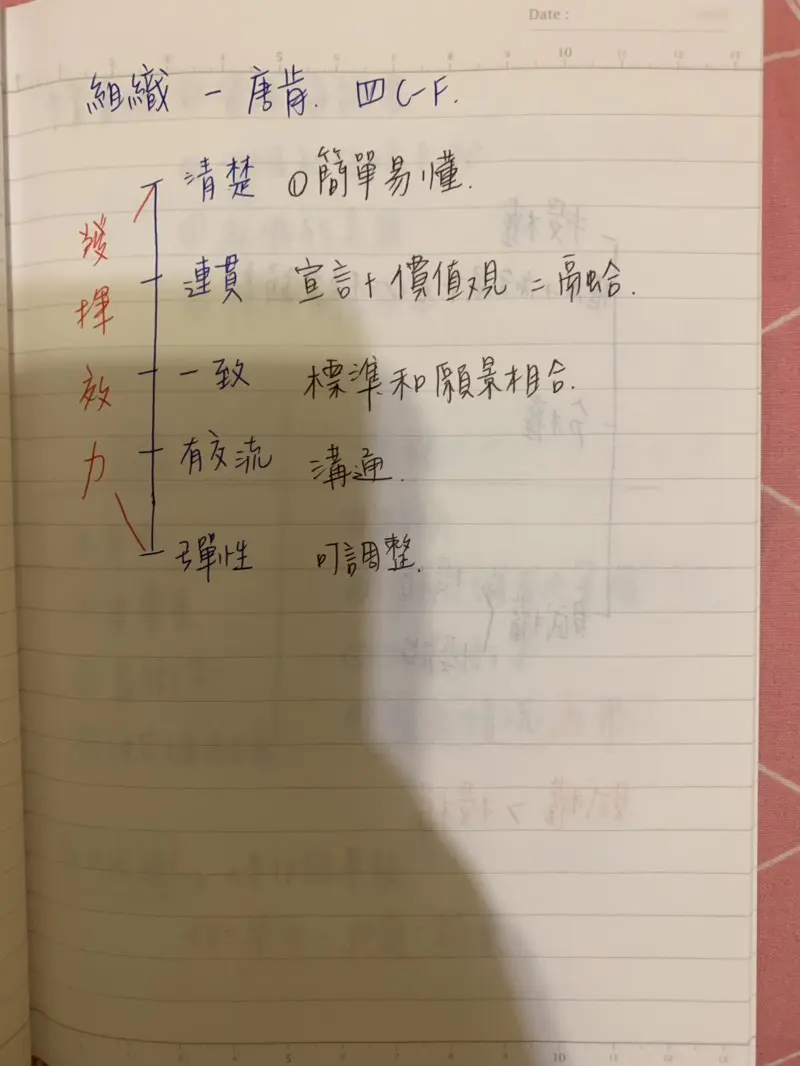 Date :
組織 - 唐肯. 四C-F.
清楚 ①簡單易懂.
連貫 宣言+價值观=高蛤.
一致 標準和願景相合.
有交流 溝通.
彈性 可調整.
發揮效力